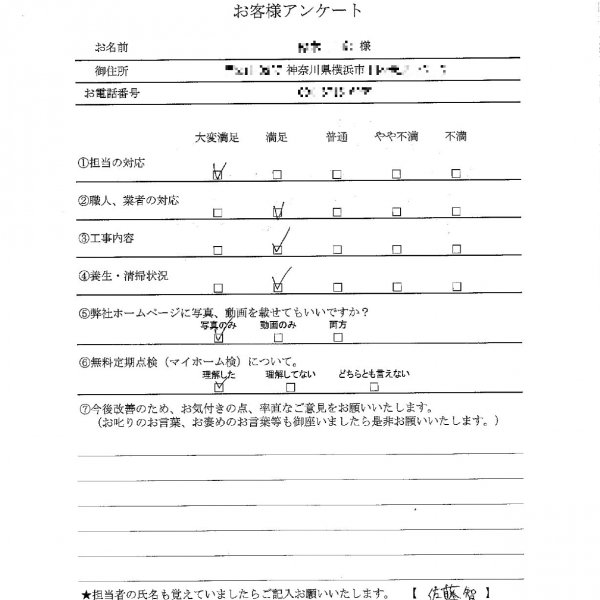 お客様アンケート
お名前 様
御住所 神奈川県横浜市
お電話番号
大変満足 満足 普通 やや不満 不満
①担当の対応 ☑ ☐ ☐ ☐ ☐
②職人、業者の対応 ☐ ☑ ☐ ☐ ☐
③工事内容 ☐ ☑ ☐ ☐ ☐
④養生・清掃状況 ☐ ☑ ☐ ☐ ☐
⑤弊社ホームページに写真、動画を載せてもいいですか？
写真のみ 動画のみ 両方
☑ ☐ ☐
⑥無料定期点検（マイホーム検）について。
理解した 理解してない どちらとも言えない
☑ ☐ ☐
⑦今後改善のため、お気付きの点、率直なご意見をお願いいたします。
（お叱りのお言葉、お褒めのお言葉等も御座いましたら是非お願いいたします。）
★担当者の氏名も覚えていましたらご記入お願いいたします。 【 佐藤智 】